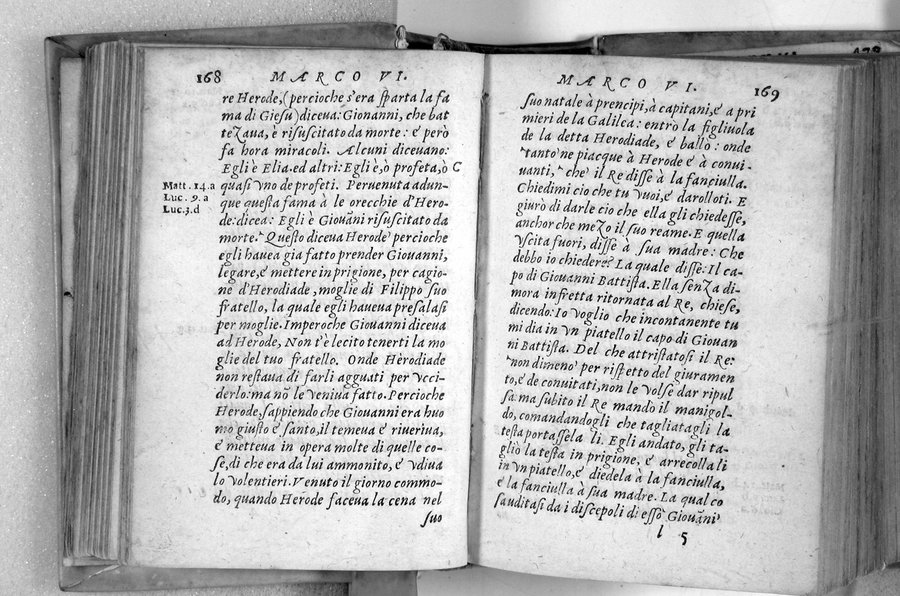 168 MARCO VI.
re Herode, (percioche s'era sparta la fa
ma di Giesu) diceua: Giouanni, che bat
teZaua, è risuscitato da morte: e però
fa hora miracoli. Alcuni diceuano:
Egli è Elia. ed altri: Egli è, ò profeta, ò C
Matt. 14.a quasi vno de profeti. Peruenuta adun-
Luc. 9. a que questa fama à le orecchie d'Hero-
Luc. 3. d de: dicea: Egli è Giouãni risuscitato da
morte. "Questo diceua Herode" percioche
egli hauea gia fatto prender Giouanni,
legare, e mettere in prigione, per cagio
ne d'Herodiade, moglie di Filippo suo
fratello, la quale egli haueua presalasi
per moglie. Imperoche Giouanni diceua
ad Herode, Non t'è lecito tenerti la mo
glie del tuo fratello. Onde Herodiade
non restaua di farli agguati per vcci-
derlo: ma nõ le veniua fatto. Percioche
Herode, sappiendo che Giouanni era huo
mo giusto e santo, il temeua e riueriua,
e metteua in opera molte di quelle co-
se, di che era da lui ammonito, e vdiua
lo volentieri. Venuto il giorno commo-
do, quando Herode faceua la cena nel
suo
MARCO VI. 169
suo natale à prencipi, à capitani, e a pri
mieri de la Galilea: entrò la figliuola
de la detta Herodiade, e ballò: onde
"tanto" ne piacque à Herode e à conui-
uanti, "che" il Re disse à la fanciulla.
Chiedimi cio che tu vuoi, e darolloti. E
giurò di darle cio che ella gli chiedesse,
anchor che mezo il suo reame. E quella
vscita fuori, disse à sua madre: Che
debbo io chiedere? La quale disse: Il ca-
po di Giouanni Battista. Ella senZa di-
mora in fretta ritornata al Re, chiese,
dicendo: Io voglio che incontanente tu
mi dia in vn piatello il capo di Giouan
ni Battista. Del che attristatosi il Re:
"non dimeno" per rispetto del giuramen
to, e de conuitati, non le volse dar ripul
sa: ma subito il Re mando il manigol-
do, comandandogli che tagliatagli la
testa portassela li. Egli andato, gli ta-
gliò la testa in prigione, e arrecolla li
in vn piatello, e diedela à la fanciulla,
e la fanciulla à sua madre. La qual co
sa uditasi da i discepoli di esso Giouãni
l 5